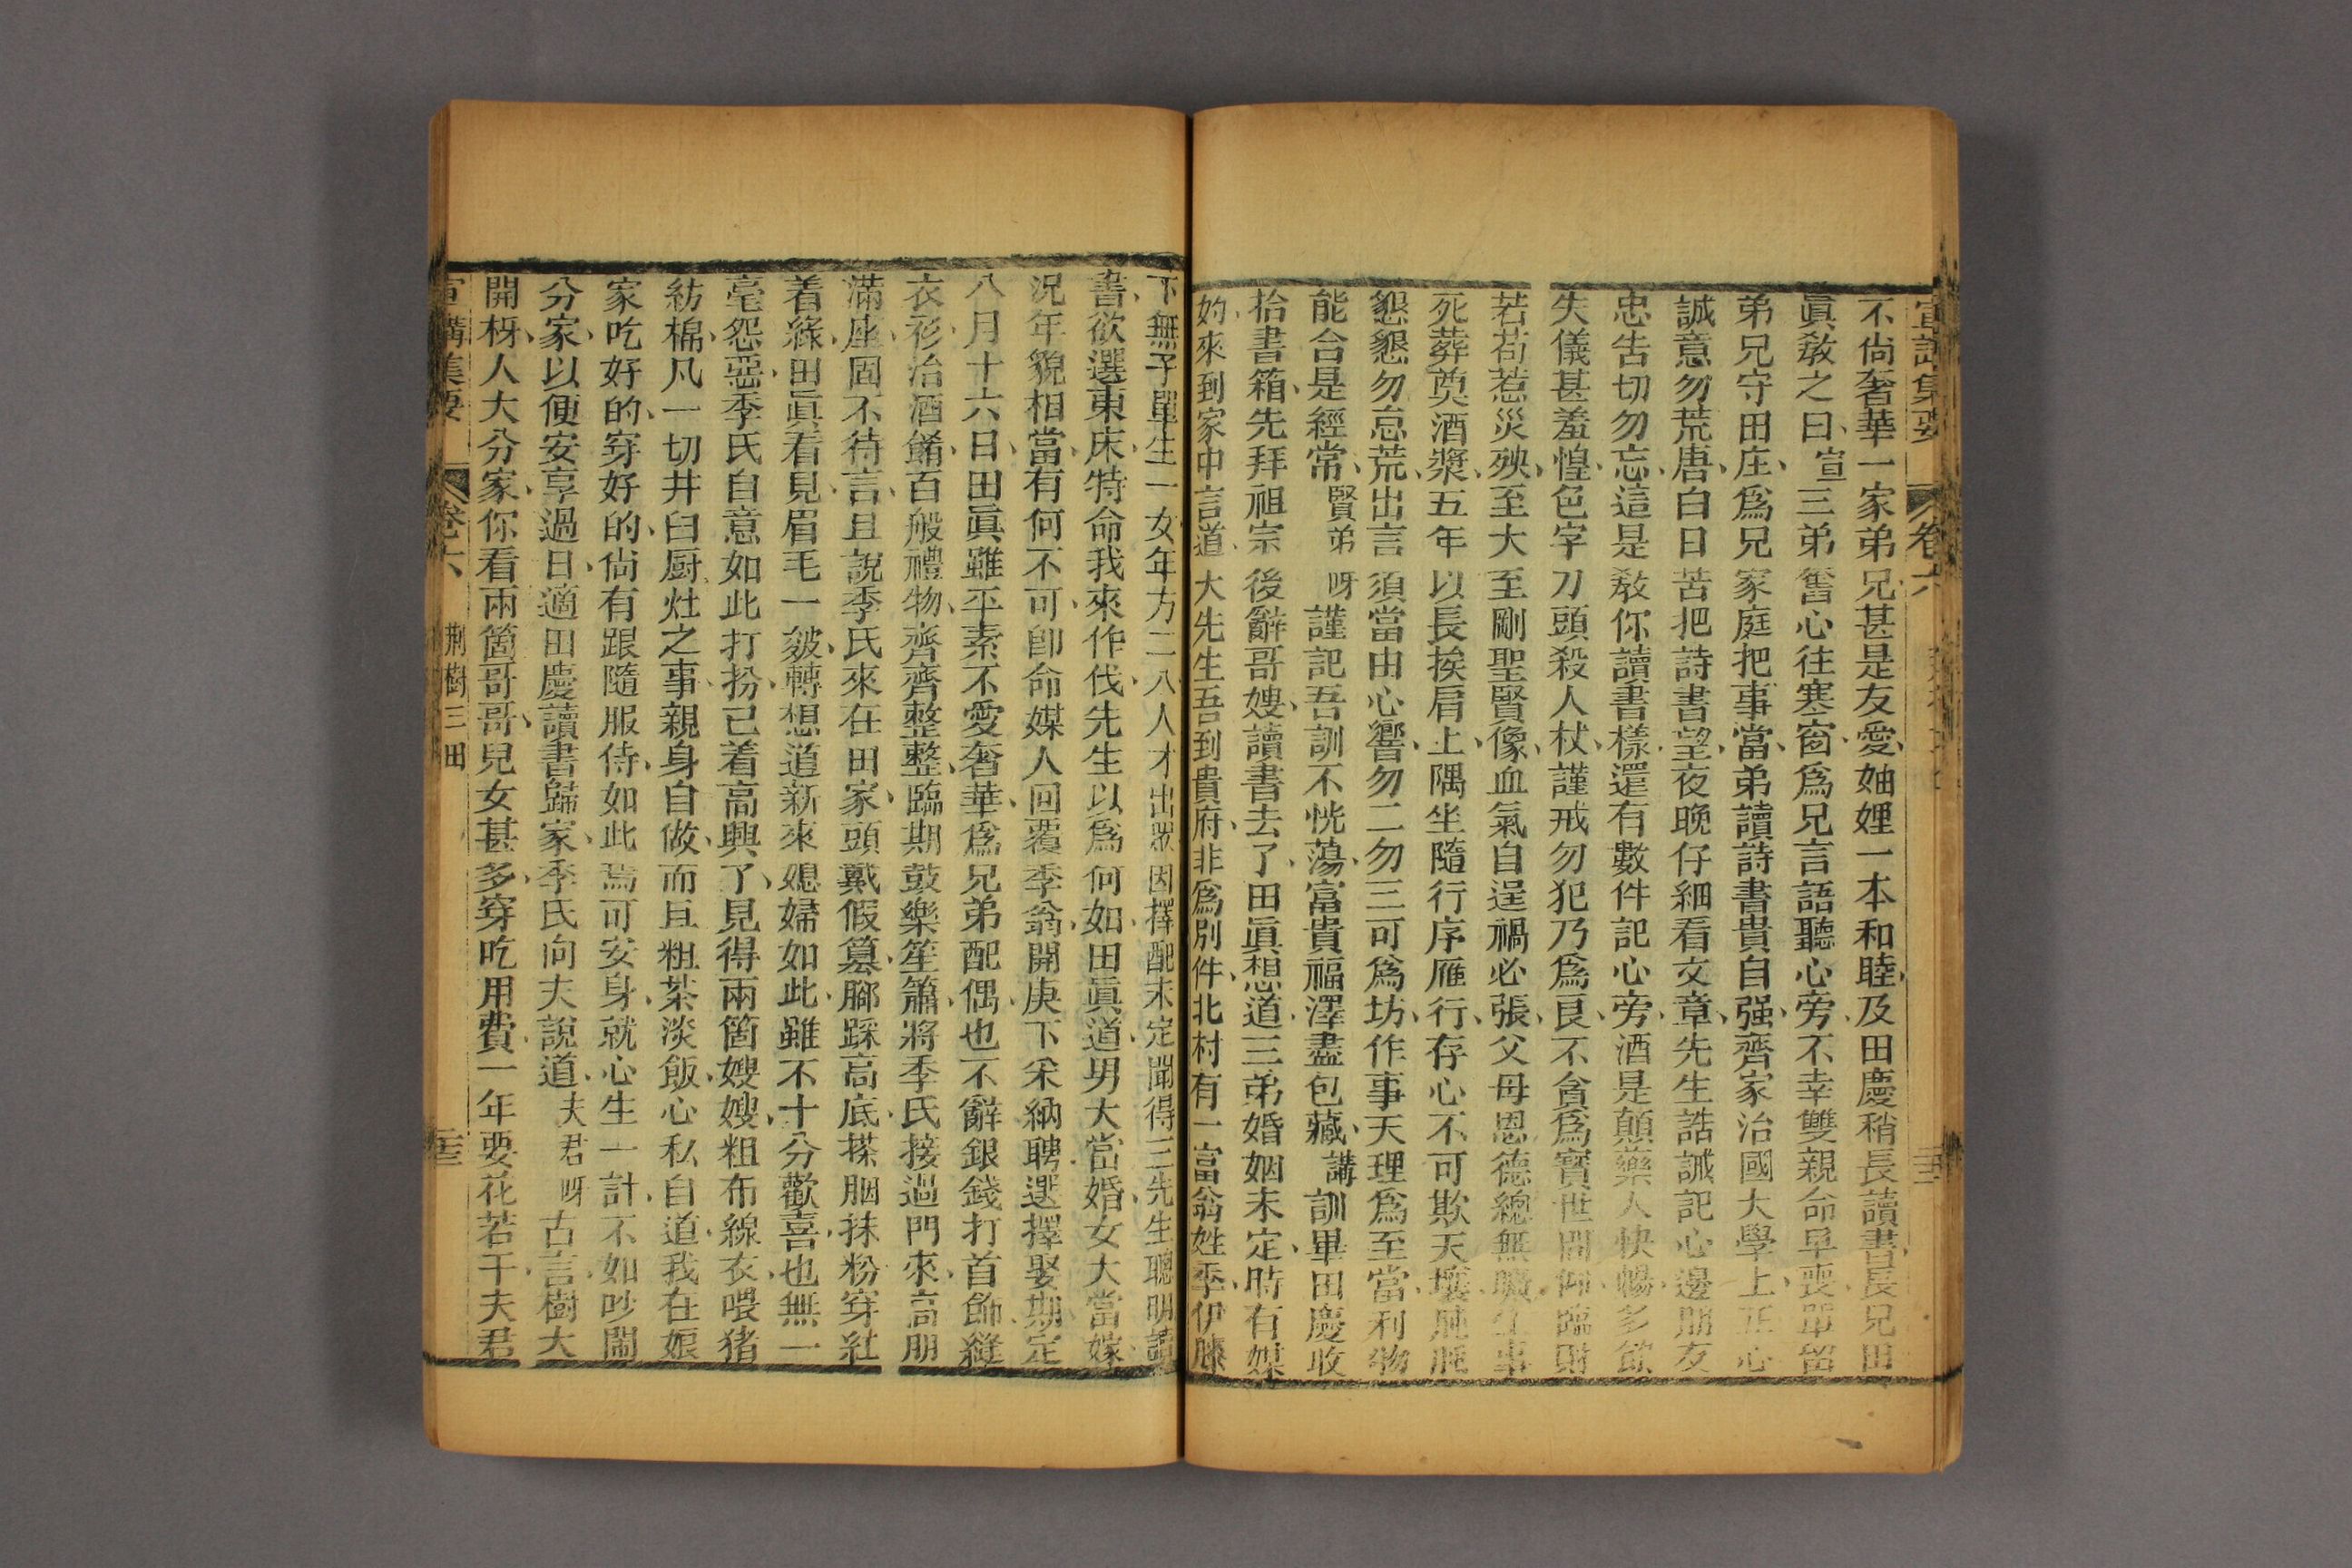 宣講集要 卷六
不尙奢華一家弟兄甚是友愛妯娌一本和睦及田慶稍長讀書長兄田
眞敎之曰宣三弟奮心往寒窗爲兄言語聽心旁不幸雙親命早喪單留
弟兄守田庄爲兄家庭把事當弟讀詩書貴自强齊家治國大學上正心
誠意勿荒唐白日苦把詩書望夜晚仔細看文章先生誥誡記心邊朋友
忠告切勿忘這是敎你讀書樣還有數件記心旁酒是顛藥人快暢多飲
失儀甚羞惶色字刀頭殺人杖謹戒勿犯乃爲良不貪爲寶世間仰臨財
若苟惹災殃至大至剛聖賢像血氣自逞禍必張父母恩德總無職生事
死葬奠酒漿五年以長挨肩上隅坐隨行序雁行行存心不可欺天壤肫肫
懇懇勿怠荒出言須當由心響勿二勿三可爲坊作事天理爲至當利物
能合是經常賢弟呀謹記吾訓不恍蕩富貴福澤盡包藏講訓畢田慶收
拾書箱先拜祖宗後辭哥嫂讀書去了田眞想道三弟婚姻未定時有媒
妁來到家中言道大先生吾到貴府非爲別件北村有一富翁姓季伊膝
下無子單生一女年方二八人才出眾因擇配未定聞得三先生聰明讀
書欲選東床特命我來作伐先生以爲何如田眞道男大當婚女大當嫁
況年貌相當有何不可卽命媒人回覆季翁開庚下采納聘選擇娶期定
八月十六日田眞雖平素不愛奢華爲兄弟配偶也不辭銀錢打首飾縫
衣衫治酒餚百般禮物齊齊整整臨期鼓樂笙簫將季氏接過門來高朋
滿座固不待言且說季氏來在田家頭戴假纂腳踩高底搽胭抹粉穿紅
着綠田眞看見眉毛一皺轉想道新來媳婦如此雖不十分歡喜也無一
毫怨惡季氏自意如此打扮己着高興了見得兩箇嫂嫂粗布線衣喂猪
紡棉凡一切井臼厨灶之事親身自做而且粗茶淡飯心私自道我在娘
家吃好的穿好的尙有跟隨服侍如此焉可安身就心生一計不如吵鬧
分家以便安享過日適田慶讀書歸家季氏向夫說道夫君呀古言樹大
開枒人大分家你看兩箇哥哥兒女甚多穿吃用費一年要花若干夫君
宣講集要 卷六 荆樹三田 三